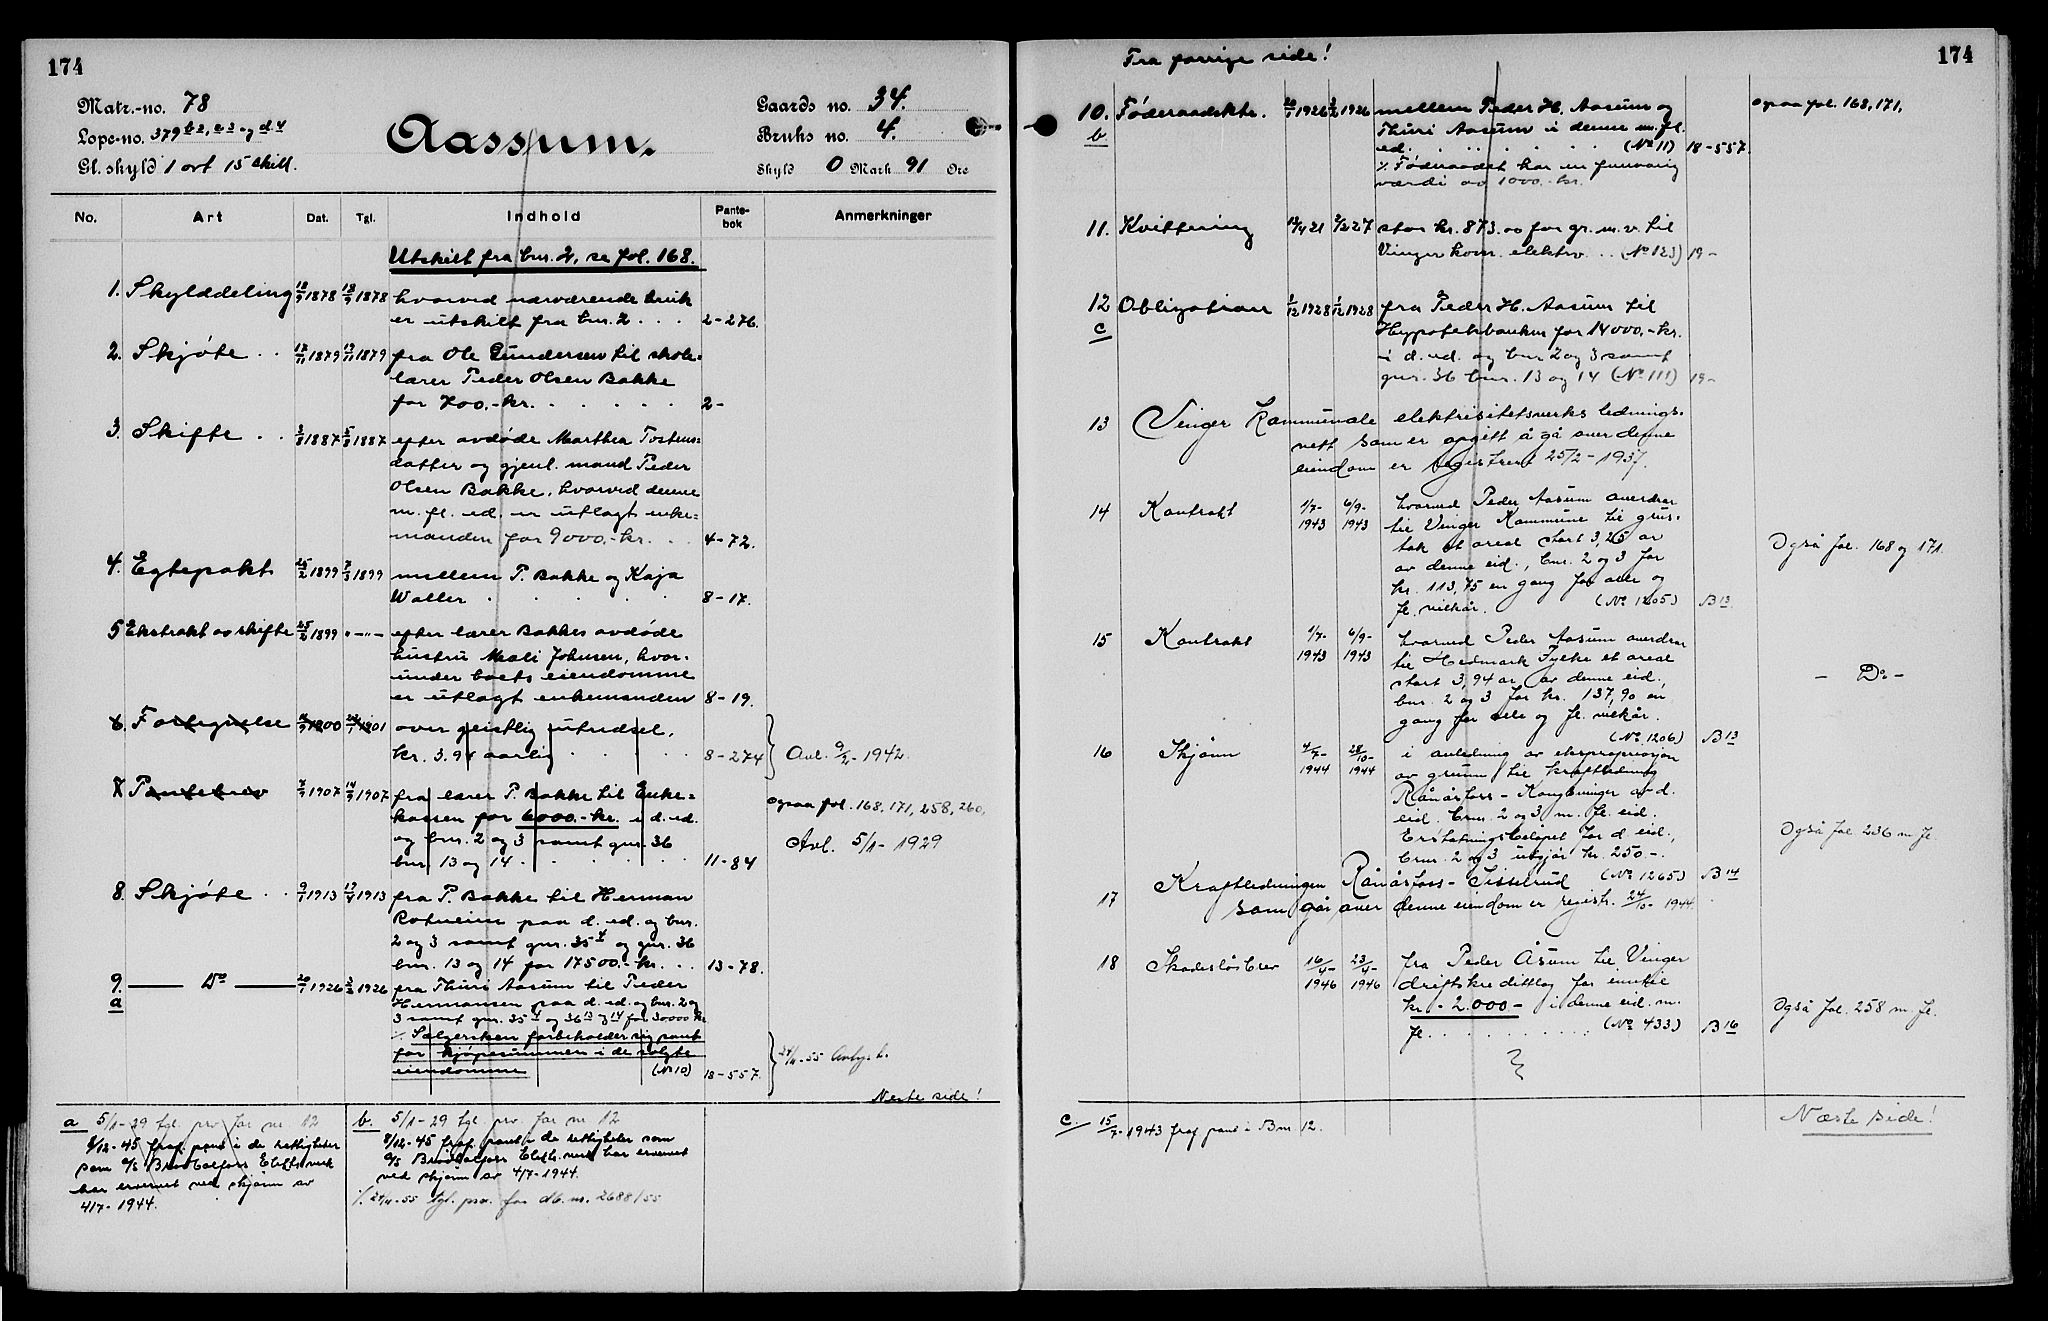 174
Matr.-no. 78
Løpe-no. 379 b2, c3 og d4
Gl. skyld 1 ort 15 skill.
Aassum.
Gaards no. 34.
Bruks no. 4.
Skyld 0 Mark 91 Øre
No. Art Dat. Tgl. Indhold Pante-bok Anmerkninger
Utskilt fra bnr. 2, se fol. 168.
1. Skylddeling 18/9 1878 18/9 1878 hvorved nærværende bruk
er utskilt fra bnr. 2 . . . 2-276.
2. Skjøte . . 17/11 1879 17/11 1879 fra Ole Gundersen til skole=
lærer Peder Olsen Bakke
for 700.-kr. . . . . . 2-
3. Skifte . . 3/8 1887 5/8 1887 efter avdøde Marthea Tostens=
datter og gjenl. mand Peder
Olsen Bakke, hvorved denne
m. fl. ed. er utlagt enke=
manden for 9000.-kr. . . 4-72.
4. Egtepakt 25/2 1899 7/3 1899 mellem P. Bakke og Kaja
Waller . . . . . 8-17.
5 Ekstrakt av skifte 25/2 1899 -"- efter lærer Bakkes avdøde
hustru Mali Johnsen, hvor-
under boets eiendomme
er utlagt enkemanden 8-19.
6. Fortegnelse 1900 1901 over geistlig utredsel,
kr. 3.94 aarlig . . . . 8-274 Avl. 9/2-1942.
7 Pantebrev 7/9 1907 14/9 1907 fra lærer P. Bakke til Enke=
kassen for 6000.-kr. i d. ed.
og bnr. 2 og 3 samt gnr. 36
bnr. 13 og 14 . . . . . 11-84
ogsaa fol. 168, 171, 258, 260.
Avl. 5/1-1929
8. Skjøte . . 9/7 1913 1913 fra P. Bakke til Herman
Rotneim paa d. ed. og bnr.
2 og 3 samt gnr. 35 4 og gnr. 36
bnr. 13 og 14 for 17500.-kr. . . 13-78.
9. a Do 20/1 1926 3/2 1926 fra Thuri Aasum til Peder
Hermansen paa d. ed. og bnr. 2 og
3 samt gnr. 35 4 og 36 13 og 14 for 30000 kr
% Sælgersken forbeholder sig pant
for kjøpesummen i de solgte
eiendomme (No 10) 18-557.
24/11-55 Avlyst.
Neste side!
a 5/1-29 tgl. prv. for nr 12
8/12-45 fraf. pant i de rettigheter
som A/S Bredbølfoss Elektr. verk
har ervervet ved skjønn av
4/7-1944.
b. 5/1-29 tgl prv. for nr 12
8/12-45 fraf. pant i de rettigheter som
A/S Elektr. verk har ervervet
ved skjønn av 4/7-1944.
% 24/11-55 tgl. prv. for db. nr. 2688/55
174
Fra forrige side!
10. b Føderaadsktr. 20/1 1926 3/2 1926 mellem Peder H. Aasum og
Thuri Aasum i denne m. fl.
ed. . . . . . . (No 11) 18-557.
% Føderaadet har en femaarig
værdi av 1000.-kr.
ogsaa fol. 168, 171,
11. Kvittering 19/4 21 2/2 27 stor kr. 873.00 for gr. m. v. til
Vinger kom. elektrv. . . (No 123) 19-
12 c Obligation 1/12 1928 1/12 1928 fra Peder H. Aasum til
Hypotekbanken for 14000,-kr.
i d. ed. og bnr 2 og 3 samt
gnr. 36 bnr. 13 og 14 (No 111) 19-
13 Vinger Kommunale elektrisitetsverks lednings-
nett som er opgitt å gå over denne
eiendom er registrert 25/2-1937.
14 Kontrakt 1/7-1943 6/9-1943 hvorved Peder Aasum averdrar
til Vinger Kommune til grus-
tak et areal stort 3,25 ar
av denne eid., bnr. 2 og 3 for
kr. 113,75 en gang for alle og
fl. vilkår. (No 1205) B 13.
Også fol. 168 og 171.
15 Kontrakt 1/7-1943 6/9-1943 hvorved Peder Aasum averdrar
til Hedmark Fylke et areal
stort 3,94 ar av denne eid.,
bnr. 2 og 3 for kr. 137,90 en
gang for alle og fl. vilkår.
(No 1206) B 13
- Do -
16 Skjønn 4/7-1944 28/10-1944 i anledning av ekspropriasjon
av grunn til kraftledning
Rånåsfoss - Kongsvinger av d.
eid. bnr. 2 og 3 m. fl. eid.
Erstatningsbeløpet for d eid.,
bnr. 2 og 3 utgjør kr. 250.-.
(No 1265) B 14
Også fol 236 m fl.
17 Kraftledningen Rånåsfoss -
som går over denne eiendom er registr. 24/10-1944.
18 Skadesløsbrev 16/4-1946 23/4-1946 fra Peder Åsum til Vinger
driftskredittlag for inntil
kr - 2.000 - i denne eid. m.
fl. . . . . . . . . . (No 433) B 16
Også fol. 258 m fl.
c. 15/7-1943 fraf pant i Bnr 12.
Næste side!